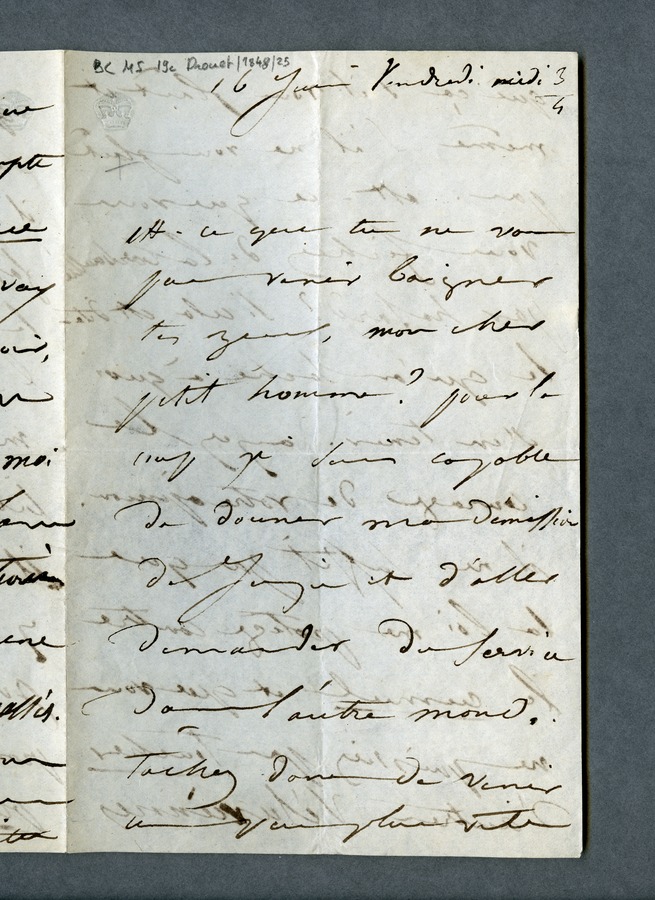 BC MS 19c Drouet/1848/25
16 Juin Vendredi midi 3/4
Est-ce que tu ne vas
pas venir baigner
tes yeux, mon cher
petit homme? pour le
coup je suis capable
de donner ma demission
de Juju et d'aller
demander du service
dans l'autre monde.
Tachez donc de venir
un peu plus vite
pte
moi